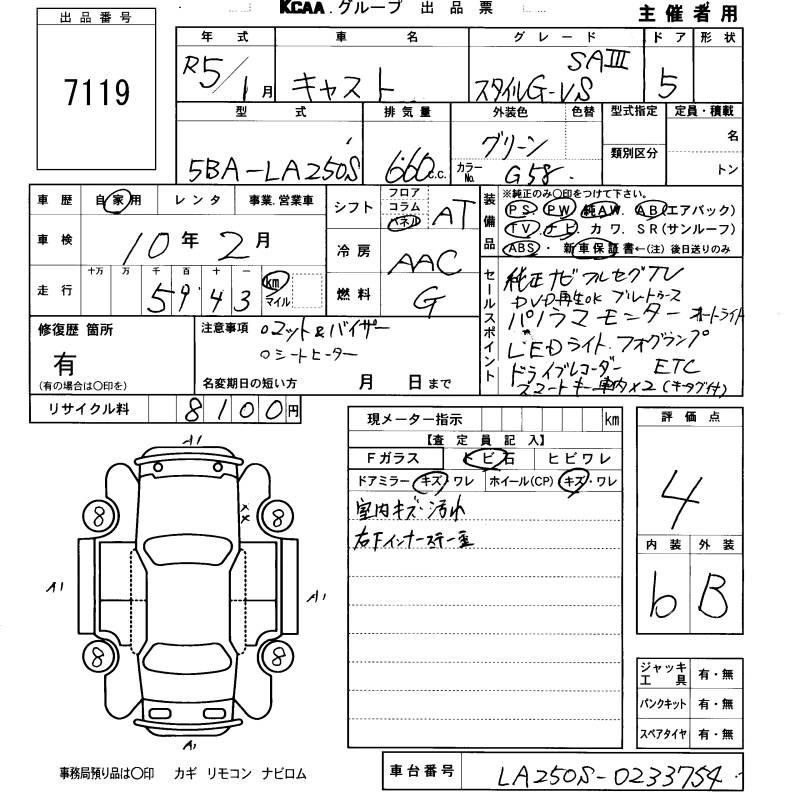 KCAA.グループ 出品票
主催者用
出品番号
7119
年式 車名 グレード ドア 形状
R5/1月 キャスト スタイルG-VS SAⅢ 5
型式 排気量 外装色 色替 型式指定 定員・積載
5BA-LA250S 660c.c. グリーン 名
類別区分
カラーNo. G58 トン
車歴 自家用 レンタ 事業.営業車
シフト フロア コラム パネル AT
装備品
※純正のみ○印をつけて下さい。
PS. PW. 純AW. AB(エアバック)
TV. ナビ. カワ. SR(サンルーフ)
ABS・新車保証書←(注)後日送りのみ
車検 10年2月
冷房 AAC
走行 十万 万 千 百 十 一
5943 km マイル
燃料 G
セールスポイント
純正ナビ フルセグTV
DVD再生OK ブルートゥース
パノラマモニター オートライト
LEDライト.フォグランプ
ドライブレコーダー ETC
スマートキー車内×2(キータグ付)
修復歴 箇所
有
(有の場合は○印を)
注意事項 ○マット&バイザー
○シートヒーター
名変期日の短い方 月 日まで
リサイクル料 8100円
現メーター指示 km
【査定員記入】
Fガラス トビ石 ヒビワレ
ドアミラー キズ・ワレ ホイール(CP) キズ・ワレ
室内キズ・汚れ
右Fインナーステー歪
評価点
4
内装 外装
b B
A1
8 8
A1 A1
8 8
A1
ジャッキ工具 有・無
パンクキット 有・無
スペアタイヤ 有・無
事務局預り品は○印 カギ リモコン ナビロム
車台番号 LA250S-0233754